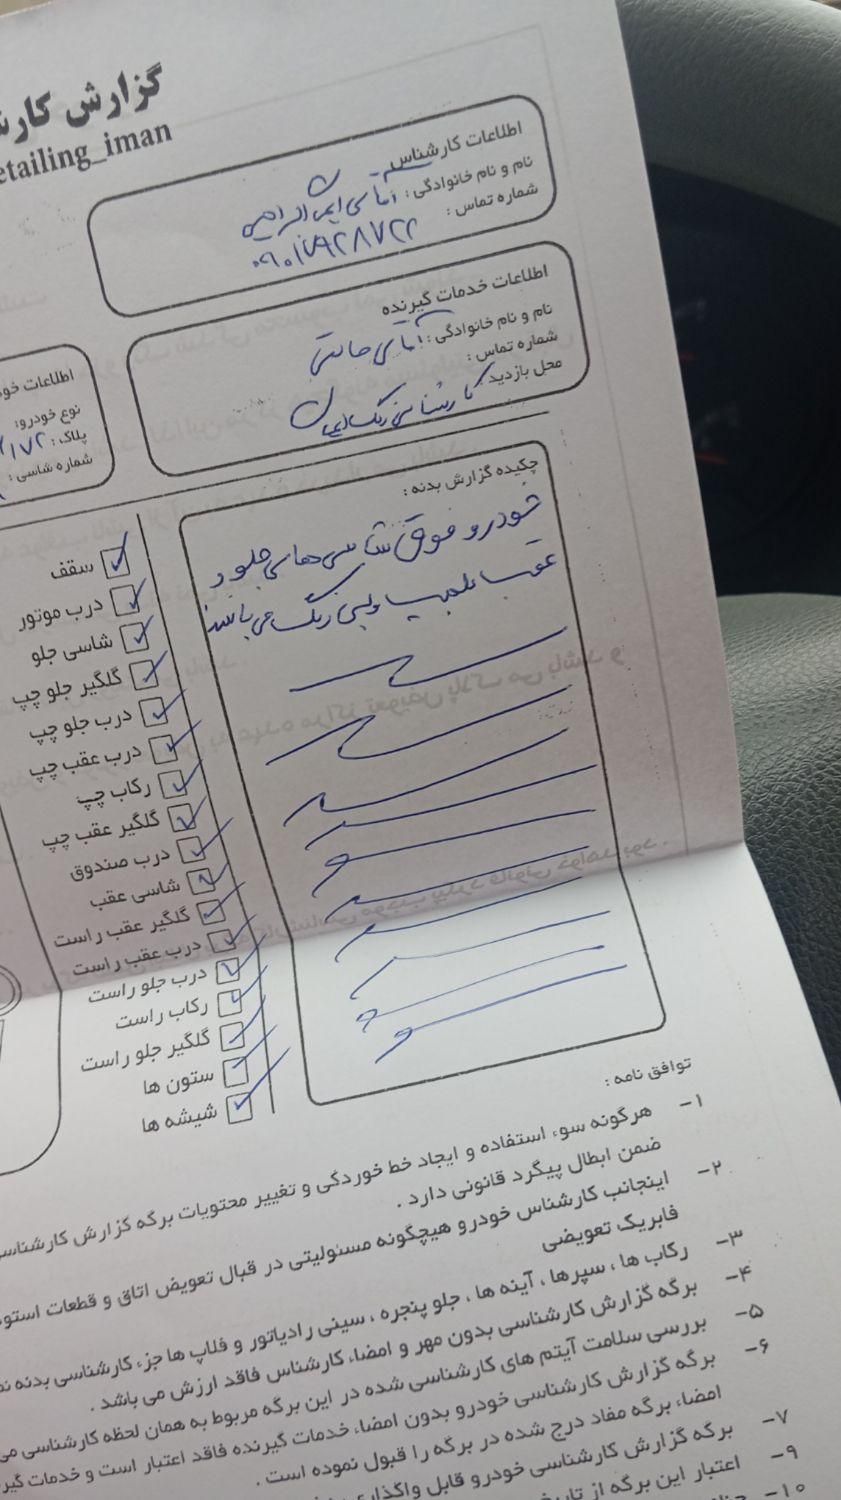 گزارش کارش
etailing_iman
اطلاعات کارشناس
نام و نام خانوادگی : آقای ایمان
شماره تماس :
اطلاعات خدمات گیرنده
نام و نام خانوادگی : آقای
شماره تماس :
محل بازدید : کارشناسی رنگ ایمان
اطلاعات خود
نوع خودرو:
پلاک :
شماره شاسی :
چکیده گزارش بدنه :
خودرو فوق شاسی های جلو و
عقب پلمپ و بی رنگ می باشد
سقف
درب موتور
شاسی جلو
گلگیر جلو چپ
درب جلو چپ
درب عقب چپ
رکاب چپ
گلگیر عقب چپ
درب صندوق
شاسی عقب
گلگیر عقب راست
درب عقب راست
درب جلو راست
رکاب راست
گلگیر جلو راست
ستون ها
شیشه ها
توافق نامه :
۱- هرگونه سوء استفاده و ایجاد خط خوردگی و تغییر محتویات برگه گزارش کارشناسی
ضمن ابطال پیگرد قانونی دارد .
۲- اینجانب کارشناس خودرو هیچگونه مسئولیتی در قبال تعویض اتاق و قطعات استو
فابریک تعویضی
۳- رکاب ها ، سپرها ، آینه ها ، جلو پنجره ، سینی رادیاتور و فلاپ ها جزء کارشناسی بدنه نم
۴- برگه گزارش کارشناسی بدون مهر و امضاء کارشناس فاقد ارزش می باشد .
۵- بررسی سلامت آیتم های کارشناسی شده در این برگه مربوط به همان لحظه کارشناسی می
۶- برگه گزارش کارشناسی خودرو بدون امضاء خدمات گیرنده فاقد اعتبار است و خدمات گیر
امضاء برگه مفاد درج شده در برگه را قبول نموده است .
۷- برگه گزارش کارشناسی خودرو قابل واگذاری
۹- اعتبار این برگه از تاریخ
۱۰-